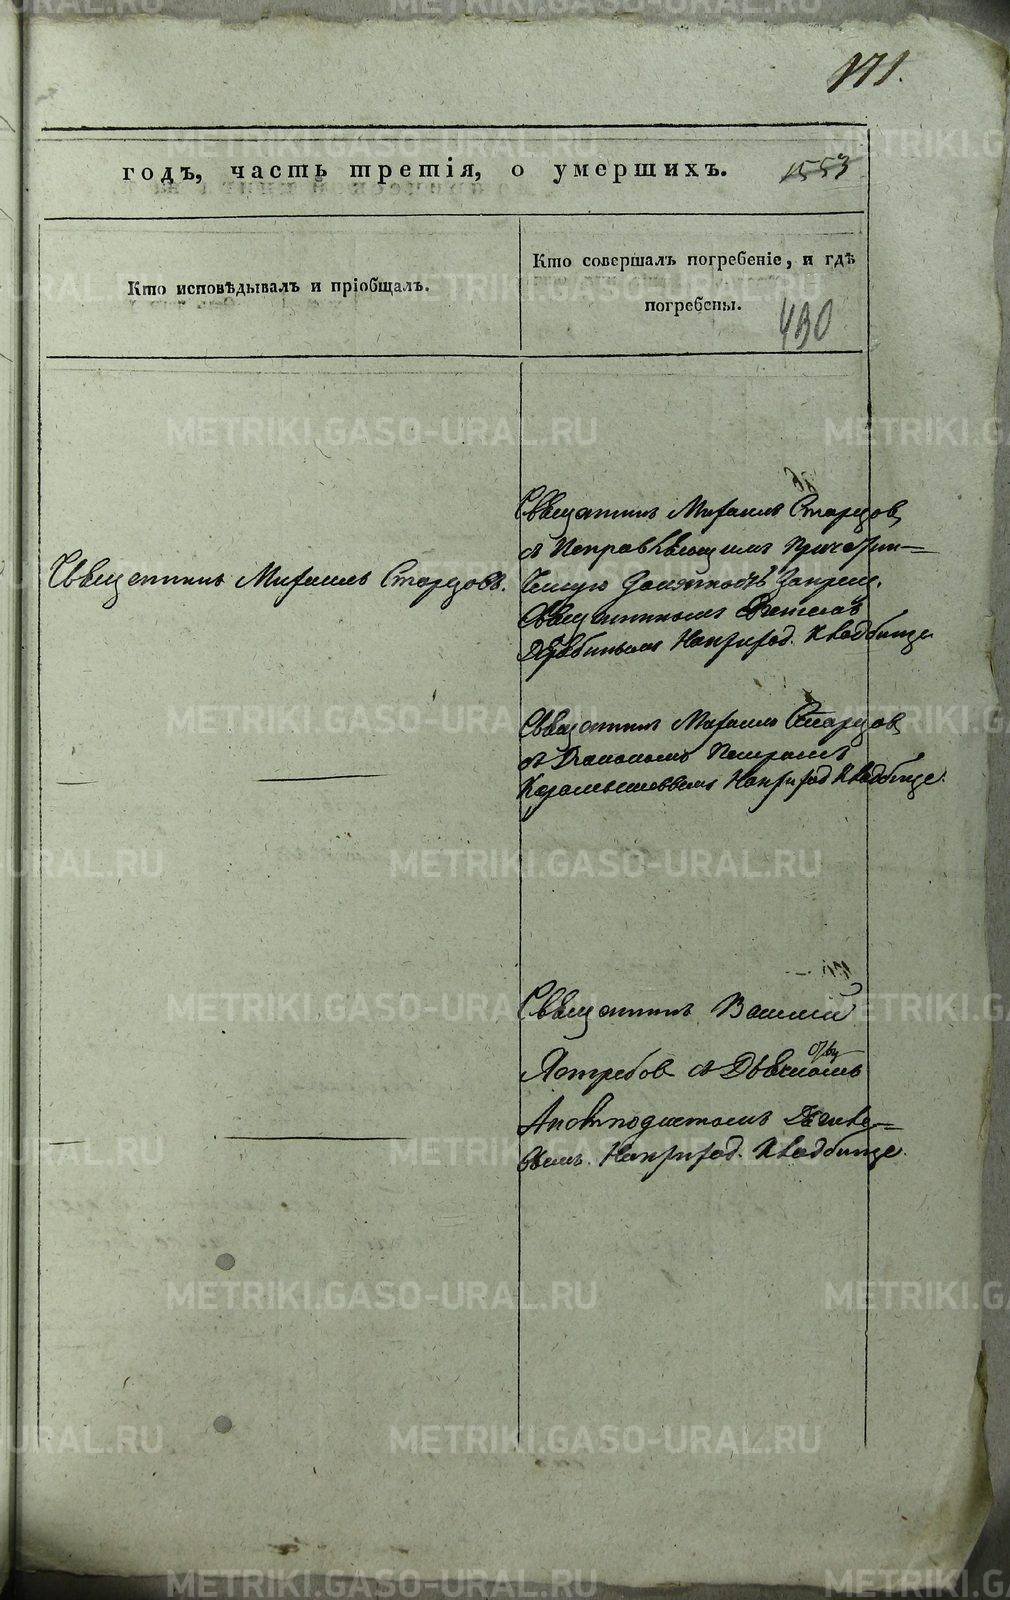 171.
годъ, часть третія, о умершихъ. 1553
Кто исповѣдывалъ и пріобщалъ.
Кто совершалъ погребеніе, и гдѣ
погребены.
430
Священникъ Михаилъ Старцовъ.
Священникъ Михаилъ Старцов
съ Исправляющимъ Причетни-
ческую Должность Запрещ.
Священникомъ
Дерябинымъ Наприход. Кладбище
Священникъ Михаилъ Старцов
съ Діакономъ Петромъ
Наприход Кладбище.
Священникъ Василій
Ястребов съ Дьячкомъ
Наприход. Кладбище.
METRIKI.GASO-URAL.RU